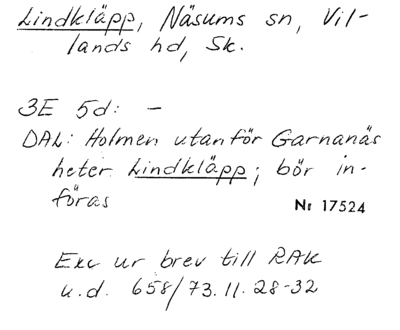 Lindkläpp, Näsums sn, Vil-
lands hd, Sk.
3E 5d: -
DAL: Holmen utanför Garnanäs
heter Lindkläpp; bör in-
föras
Nr 17524
Exc ur brev till RAK
u.d. 658/73.11.28-32